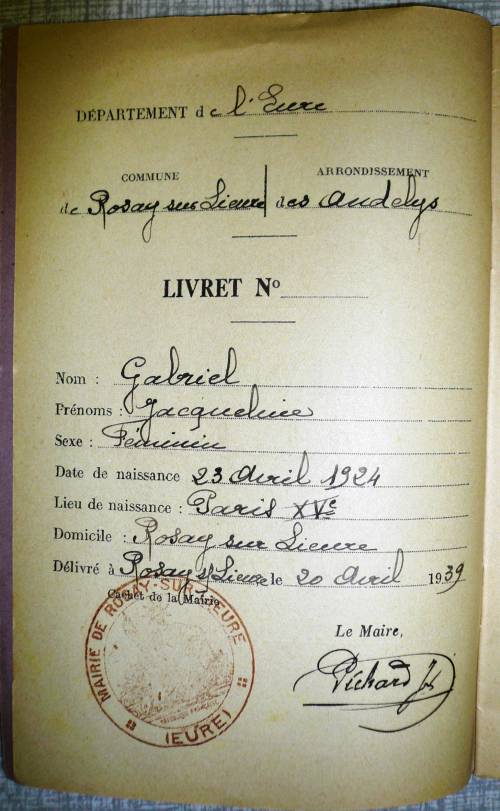 DÉPARTEMENT de l'Eure
COMMUNE
de Rosay sur Lieure
ARRONDISSEMENT
des Andelys
LIVRET Nº
Nom : Gabriel
Prénoms : Jacqueline
Sexe : Féminin
Date de naissance 23 Avril 1924
Lieu de naissance : Paris XVe
Domicile : Rosay sur Lieure
Délivré à Rosay s/ Lieure le 20 Avril 1939
Cachet de la Mairie
MAIRIE DE ROSAY-SUR-LIEURE
(EURE)
Le Maire,
Pichard